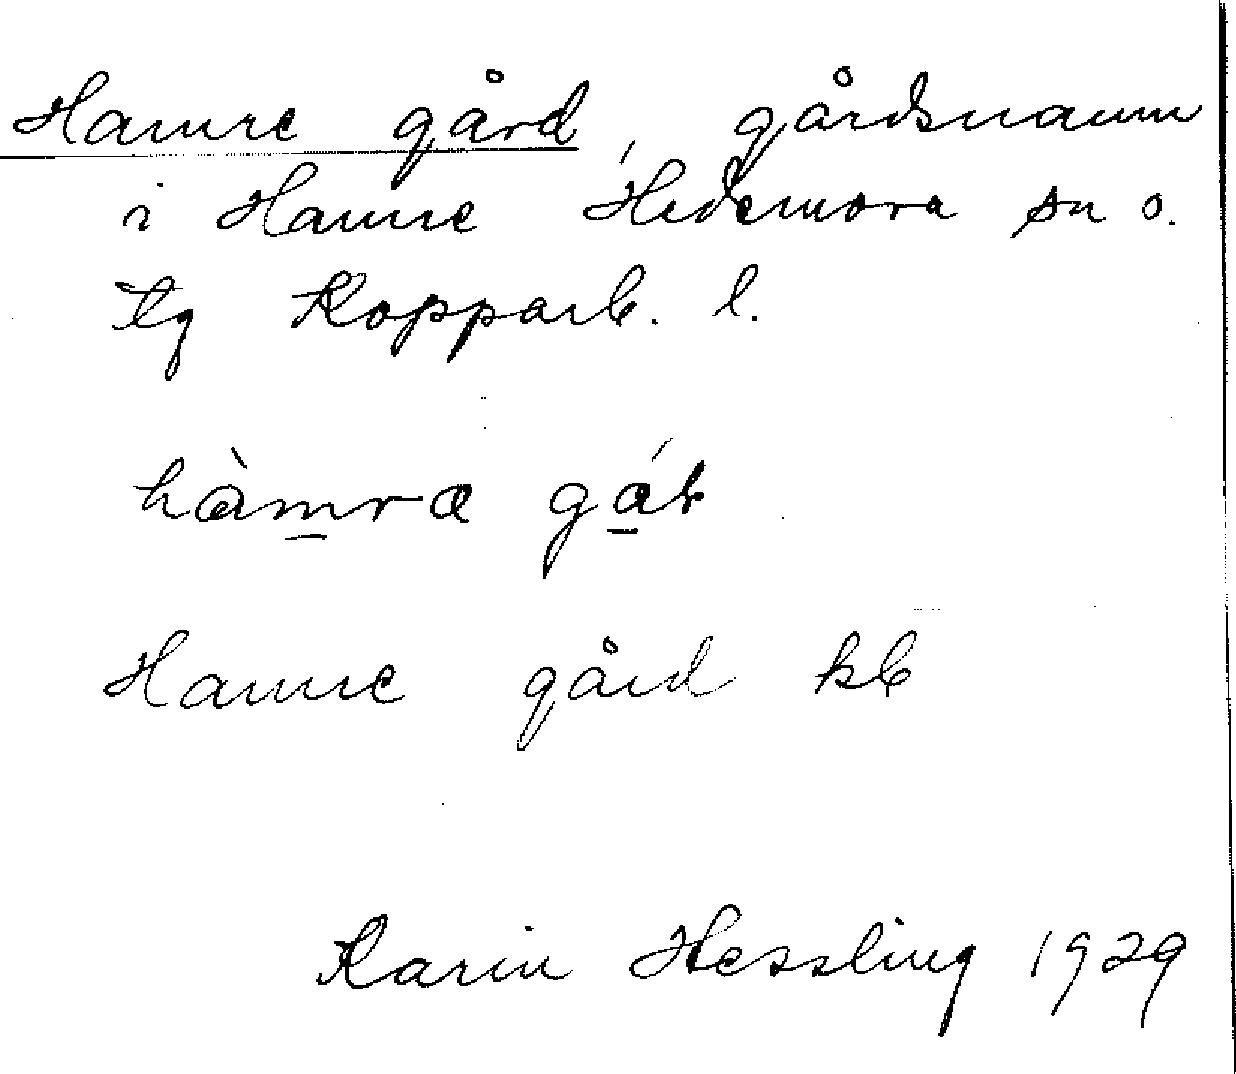 Hamre gård, gårdsnamn
i Hamre Hedemora sn o.
tg Kopparb. l.
hàmra gáɽ
Hamre gård kb
Karin Hessling 1929